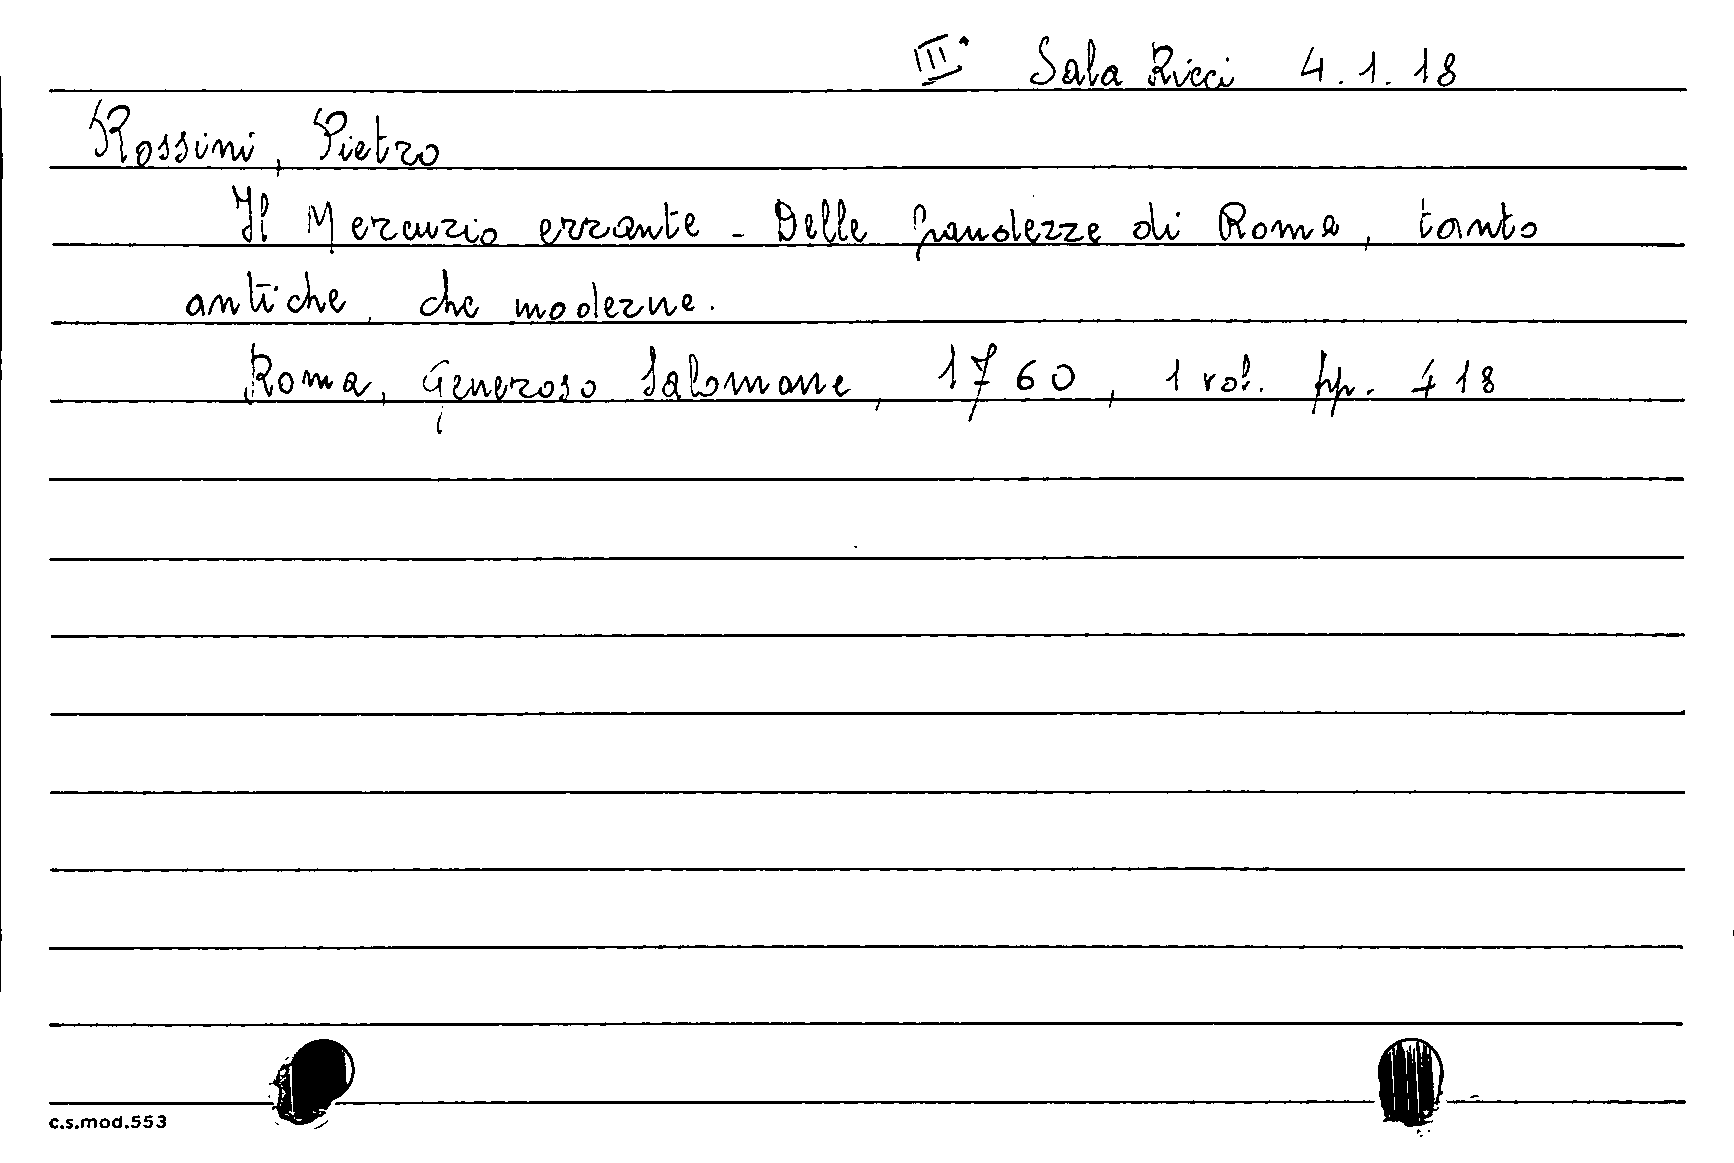 III° Sala Ricci 4.1.18
Rossini, Pietro
Il Mercurio errante - Delle grandezze di Roma, tanto
antiche, che moderne.
Roma, Generoso Salomone, 1760, 1 vol. pp. 418
c.s.mod.553